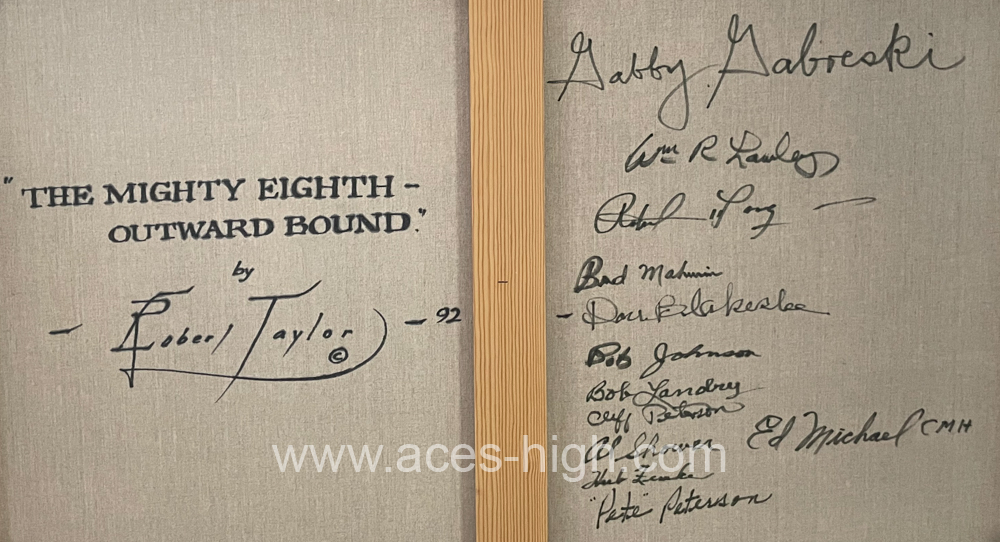 "THE MIGHTY EIGHTH –
OUTWARD BOUND."
by
– Robert Taylor – 92
©
Gabby Gabreski
Wm R Lawley
Robert
Bud Mahurin
– Don Blakeslee
Bob Johnson
Bob Landry
Cliff Peterson
Ed Michael CMH
Hub Zemke
"Pete" Peterson
www.aces-high.com